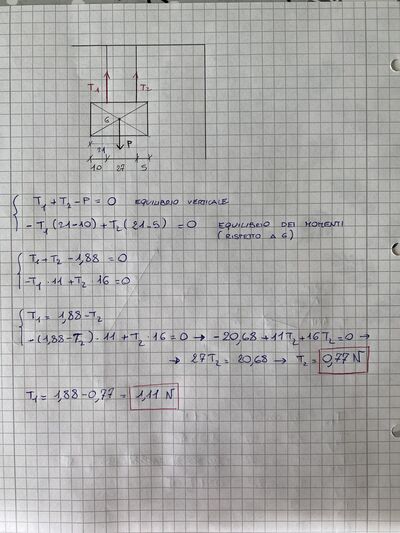 T₁ T₂
G
21 P
10 27 5
T₁ + T₂ - P = 0 EQUILIBRIO VERTICALE
- T₁ (21-10) + T₂ (21-5) = 0 EQUILIBRIO DEI MOMENTI
(RISPETTO A G)
T₁ + T₂ - 1,88 = 0
-T₁ · 11 + T₂ · 16 = 0
T₁ = 1,88 - T₂
-(1,88 - T₂) · 11 + T₂ · 16 = 0 → - 20,68 + 11T₂ + 16T₂ = 0 →
→ 27T₂ = 20,68 → T₂ = 0,77 N
T₁ = 1,88 - 0,77 = 1,11 N